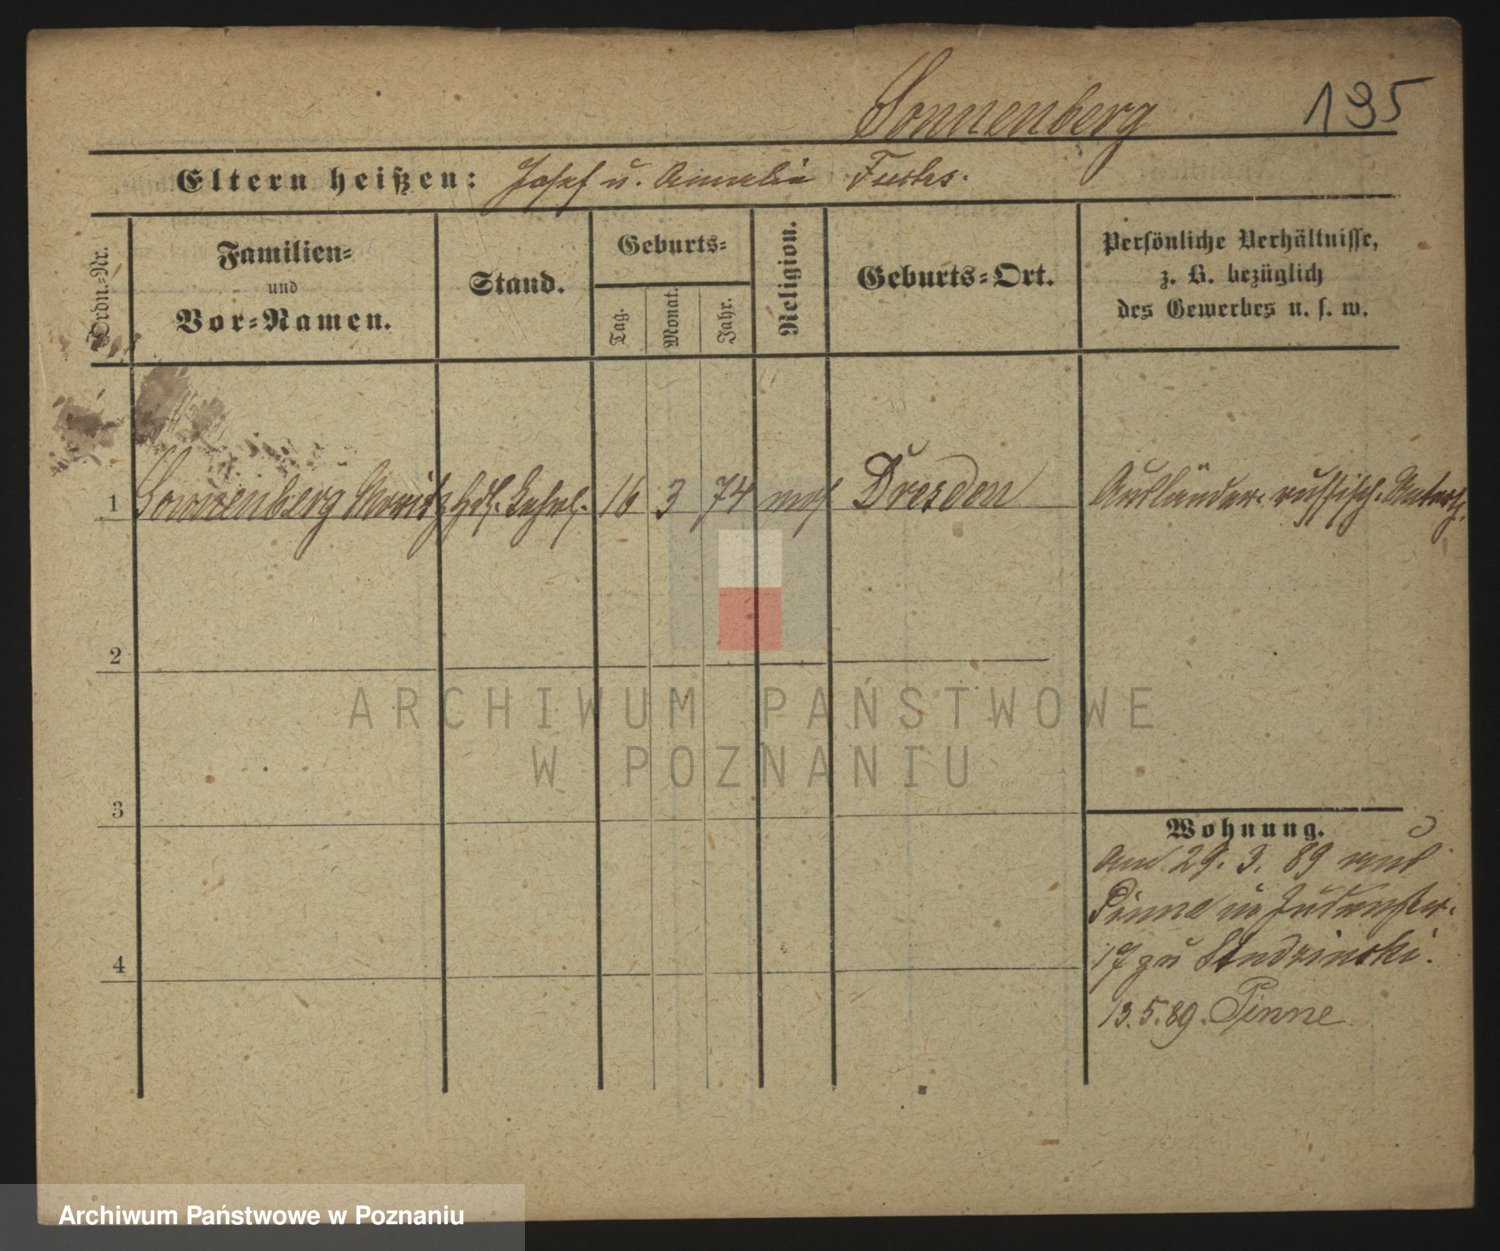 Sonnenberg 195
Eltern heißen: Josef u. Amalie Fuchs.
Ordn.-Nr.
Familien-
und
Vor-Namen.
Stand.
Geburts-
Tag.
Monat.
Jahr.
Religion.
Geburts-Ort.
Persönliche Verhältnisse,
z. B. bezüglich
des Gewerbes u. s. w.
1 Sonnenberg Moritz Hdl. Lehrl. 16 3 74 mos Dresden Ausländer russisch. Untert.
2
3
4
Wohnung.
Am 29. 3. 89 aus
Pinne in Judenstr.
17 zu Studzinski.
13.5.89. Pinne
ARCHIWUM PAŃSTWOWE
W POZNANIU
Archiwum Państwowe w Poznaniu